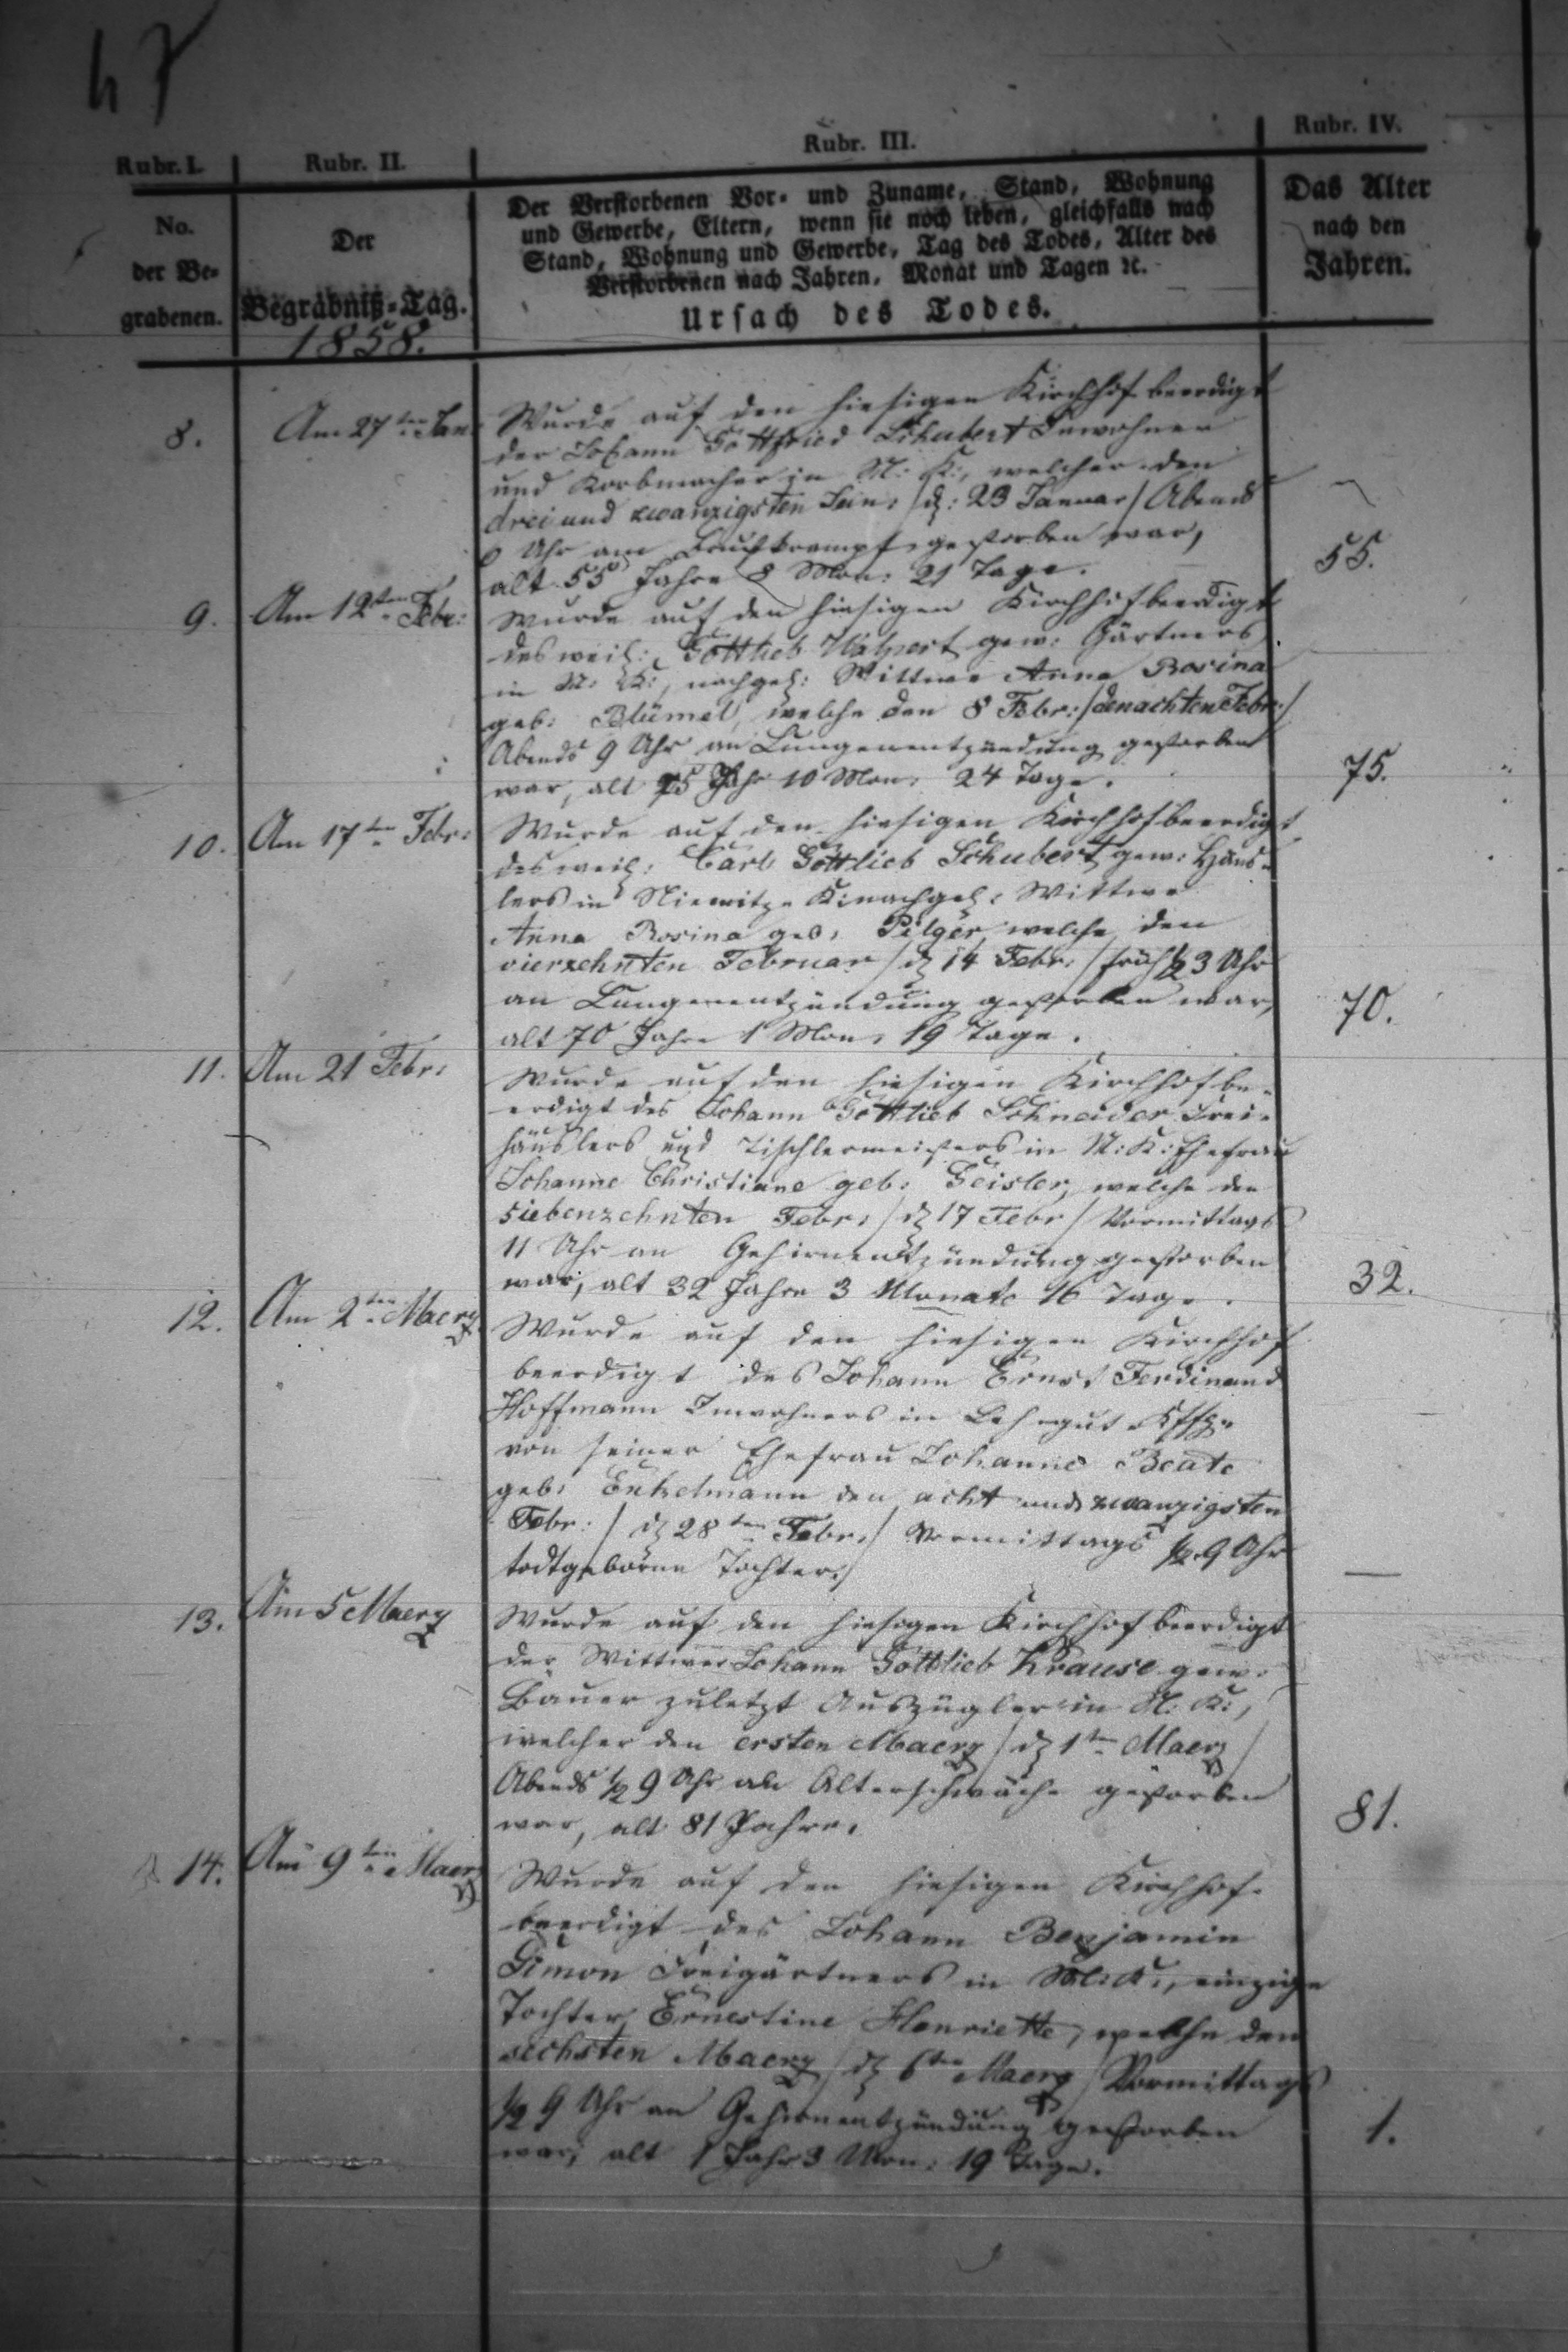 47
Rubr. I.
Rubr. II.
Rubr. III.
Rubr. IV.
No.
der Be-
grabenen.
Der
Begräbniß-Tag.
1858.
Der Verstorbenen Vor- und Zuname, Stand, Wohnung
und Gewerbe, Eltern, wenn sie noch leben, gleichfalls nach
Stand, Wohnung und Gewerbe, Tag des Todes, Alter des
Verstorbenen nach Jahren, Monat und Tagen ꝛc.
Ursach des Todes.
Das Alter
nach den
Jahren.
8.
Am 27ten Jan:
Wurde auf den hiesigen Kirchhof beerdigt
der Johann Gottfried Schubert Inwohner
und Korbmacher in N: K:, welcher den
drei und zwanzigsten Jan: /d: 23 Januar/ Abends
Uhr am gestorben war,
alt 55 Jahre 8 Mon: 21 Tage.
55.
9.
Am 12ten Febr:
Wurde auf den hiesigen Kirchhof beerdigt
des weil: Gottlieb Walpert gew: Gärtners
in N: K:, nachgel: Wittwe Anna Rosina
geb: Blümel, welche den 8 Febr: /den achten Febr:/
Abends 9 Uhr an Lungenentzündung gestorben
war, alt 75 Jahr 10 Mon: 24 Tage.
75.
10.
Am 17ten Febr:
Wurde auf den hiesigen Kirchhof beerdigt
des weil: Carl Gottlieb Schubert gew: Häus-
lers in nachgel: Wittwe
Anna Rosina geb: Pilger, welche den
vierzehnten Februar /d 14 Febr:/ früh ½ 3 Uhr
an Lungenentzündung gestorben war,
alt 70 Jahre 1 Mon: 19 Tage.
70.
11.
Am 21 Febr:
Wurde auf den hiesigen Kirchhof be-
erdigt des Johann Gottlieb Schneider Frei-
häuslers und Tischlermeisters in N: K: Ehefrau
Johanne Christiane geb: Geisler, welche den
siebenzehnten Febr: /d 17 Febr/ Vormittags
11 Uhr an Gehirnentzündung gestorben
war, alt 32 Jahre 3 Monate 16 Tage.
32.
12.
Am 2ten Maerz
Wurde auf den hiesigen Kirchhof
beerdigt des Johann Ernst Ferdinand
Hoffmann Inwohners in Lehngut
von seiner Ehefrau Johanne Beate
geb: Enkelmann den acht und zwanzigsten
Febr: /d 28ten Febr:/ Vormittags ½ 9 Uhr
todtgeborne Tochter.
—
13.
Am 5 Maerz
Wurde auf den hiesigen Kirchhof beerdigt
der Wittwer Johann Gottlieb Krause gew:
Bauer zuletzt Auszügler in N: K:,
welcher den ersten Maerz /d 1ten Maerz/
Abends ½ 9 Uhr an Altersschwäche gestorben
war, alt 81 Jahre.
81.
14.
Am 9ten Maerz
Wurde auf den hiesigen Kirchhof
beerdigt des Johann Benjamin
Simon Freigärtners in N: K:, einzige
Tochter Ernestine Henriette, welche den
sechsten Maerz /d 6ten Maerz/ Vormittags
½ 9 Uhr an Gehirnentzündung gestorben
war, alt 1 Jahr 3 Mon: 19 Tage.
1.